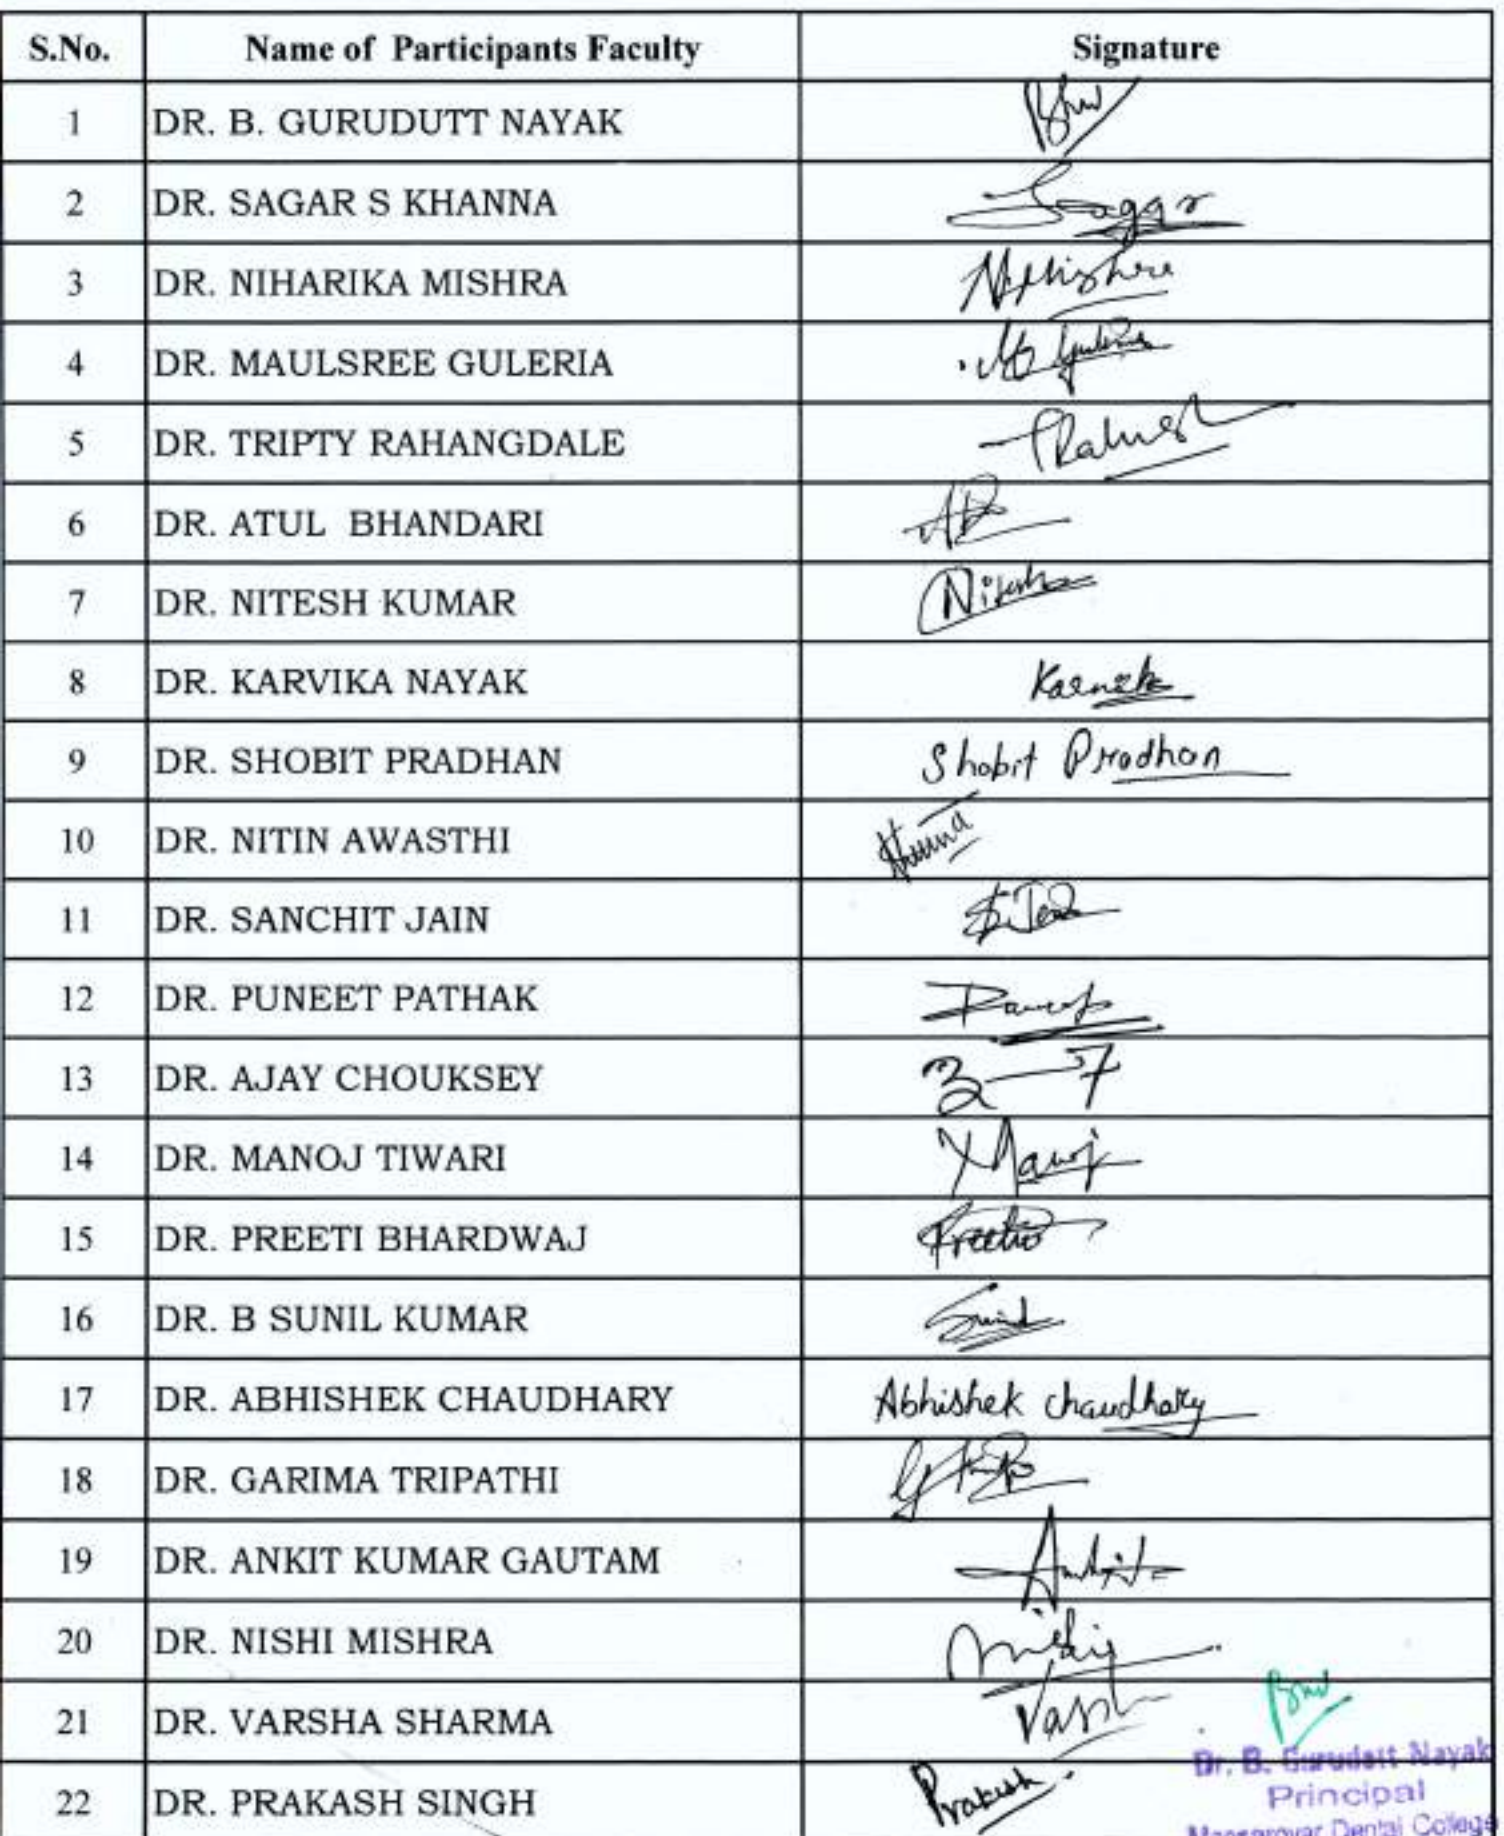 S.No. Name of Participants Faculty Signature
1 DR. B. GURUDUTT NAYAK
2 DR. SAGAR S KHANNA Sagar
3 DR. NIHARIKA MISHRA
4 DR. MAULSREE GULERIA
5 DR. TRIPTY RAHANGDALE
6 DR. ATUL BHANDARI
7 DR. NITESH KUMAR Nitesh
8 DR. KARVIKA NAYAK
9 DR. SHOBIT PRADHAN Shobit Pradhan
10 DR. NITIN AWASTHI
11 DR. SANCHIT JAIN
12 DR. PUNEET PATHAK
13 DR. AJAY CHOUKSEY
14 DR. MANOJ TIWARI Manoj
15 DR. PREETI BHARDWAJ
16 DR. B SUNIL KUMAR Sunil
17 DR. ABHISHEK CHAUDHARY Abhishek Chaudhary
18 DR. GARIMA TRIPATHI
19 DR. ANKIT KUMAR GAUTAM
20 DR. NISHI MISHRA
21 DR. VARSHA SHARMA
Dr. B. Gurudatt Nayak
22 DR. PRAKASH SINGH Prakash
Principal
Dental College